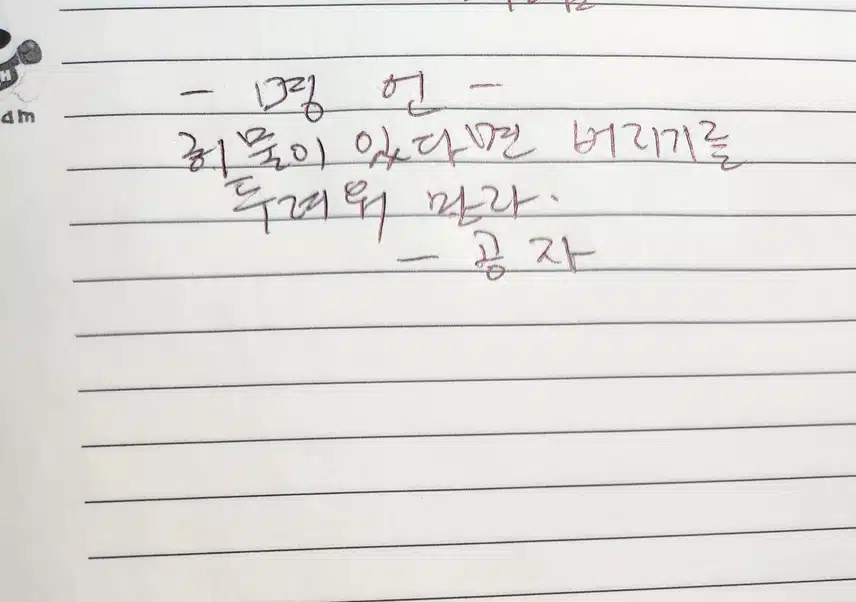 - 명 언 -
허물이 있다면 버리기를
두려워 말라.
- 공 자
am
H